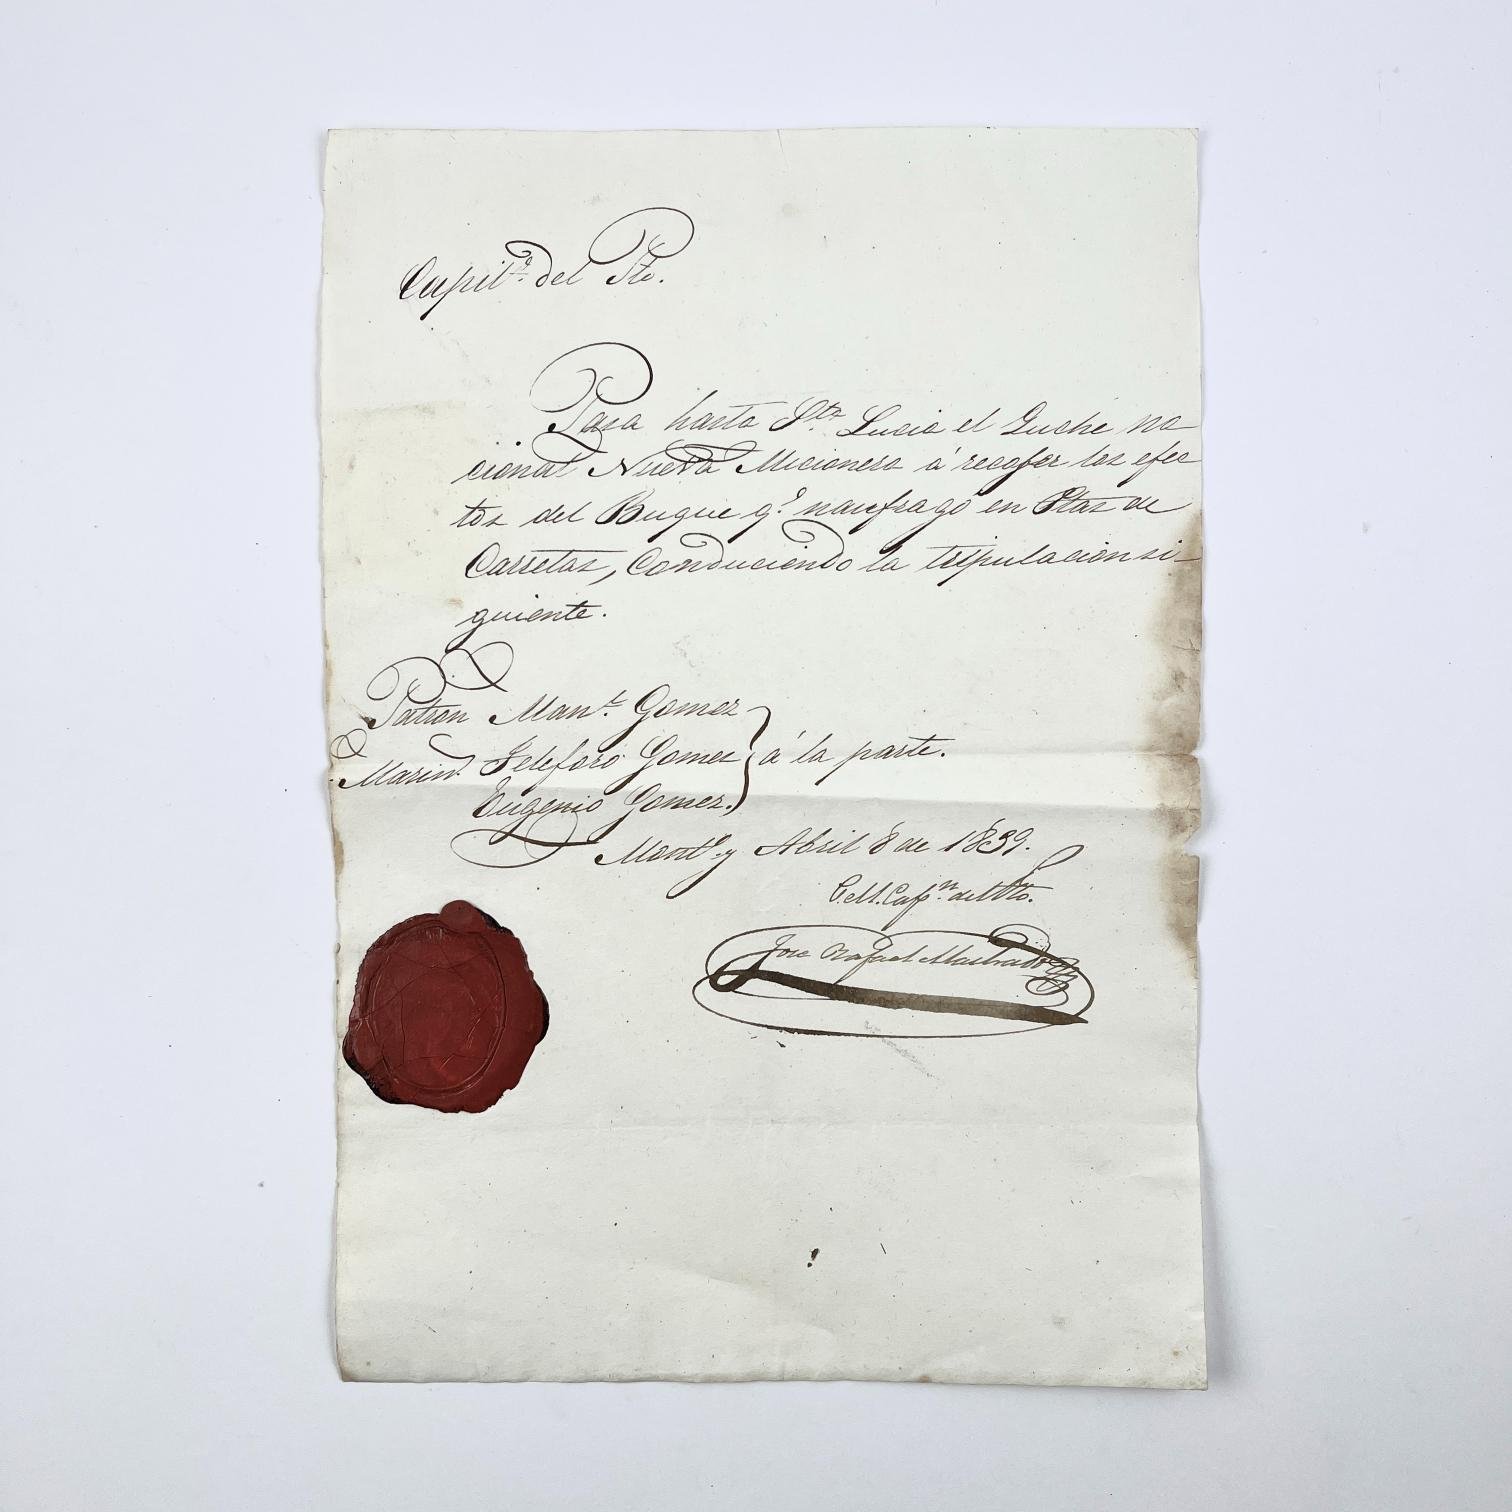 Capit.ª del Pto.
Pasa hasta Sta. Lucia el Quche na-
cional Nueva Micionera á recojer los efec
tos del Buque q.e naufragó en Ptas de
Carretas, Conduciendo la tripulacion si-
guiente.
Patron Man.l Gomez
Marin.s Teleforo Gomez á la parte.
Eugenio Gomez.
Mont.o y Abril 8 de 1839.
Cap.n del Pto.
Jose Rafael Machado